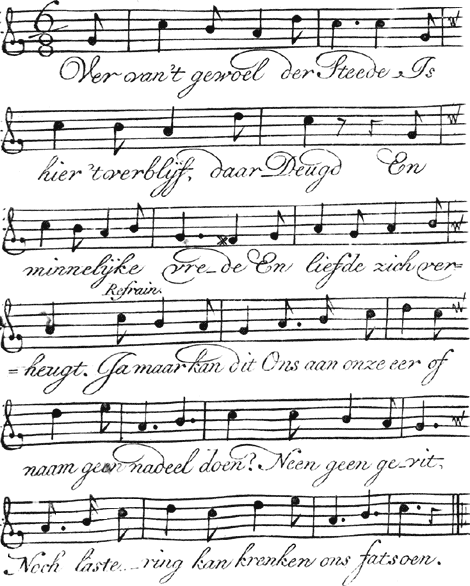 6
8
Ver van't gewoel der Steede, Is
hier 't verblijf, daar Deugd En
minnelijke vre-de En liefde zich ver=
Refrain.
=heugt. Ja maar kan dit Ons aan onze eer of
naam geen nadeel doen? Neen geen ge-vit,
Noch laste-ring kan krenken ons fatsoen.